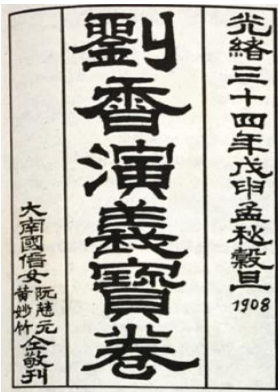 光緒三十四年戊申孟秋穀旦
1908
劉香演義寶卷
大南國信女
阮慈元
黄妙竹
仝敬刊